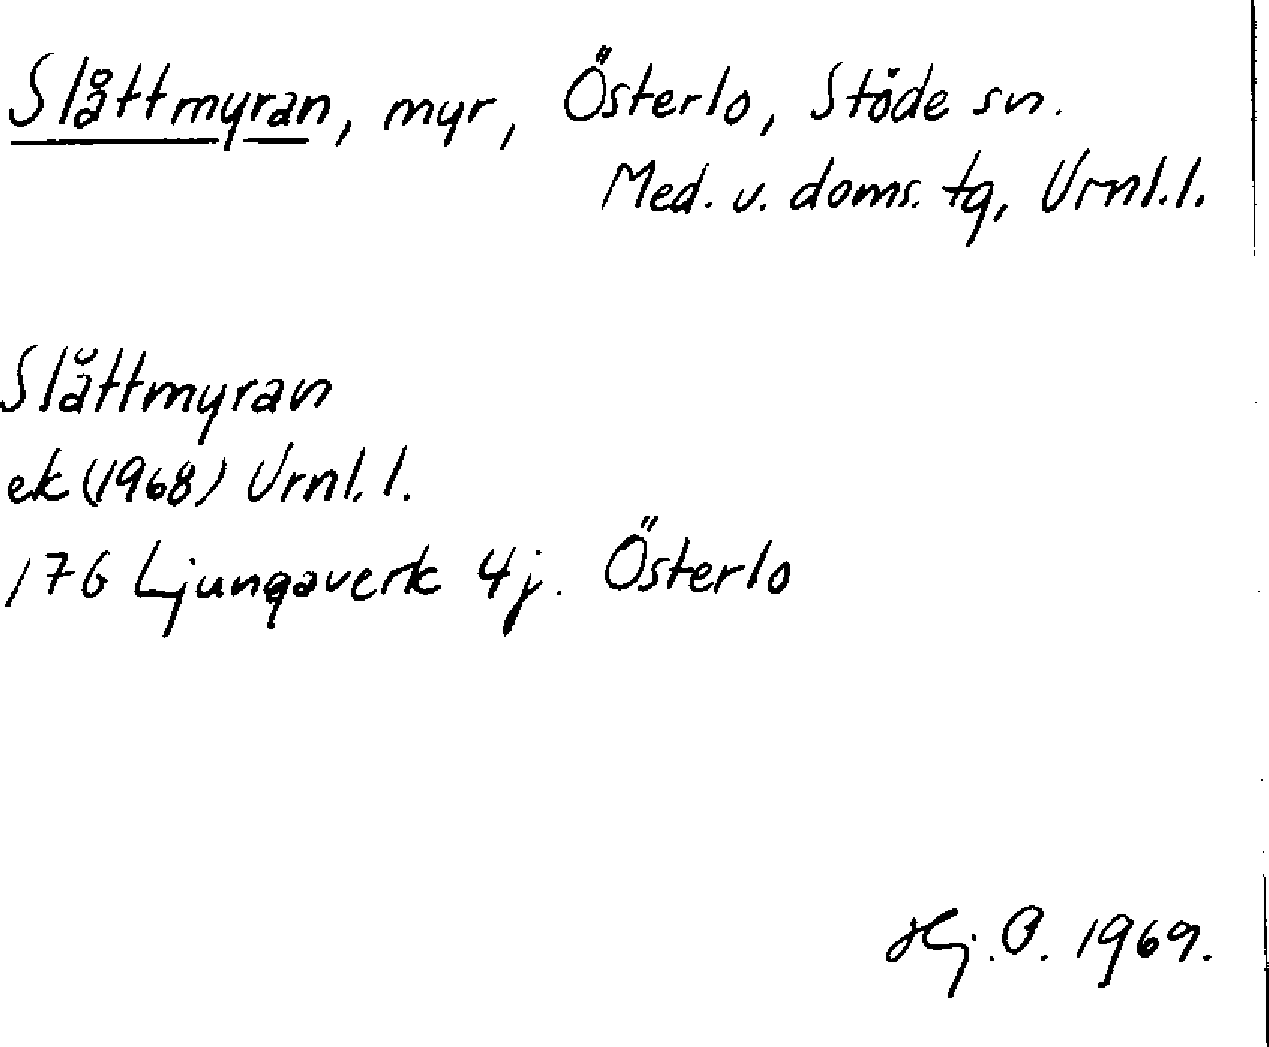 Slåttmyran, myr, Österlo, Stöde sn.
Med. v. doms. tg, Vrnl.l.
Slåttmyran
ek (1968) Vrnl.l.
176 Ljungaverk 4j. Österlo
Hj. O. 1969.